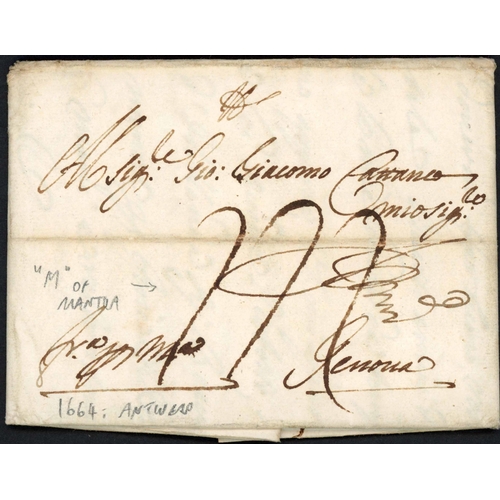 Al Sig.re Gio: Giacomo Carranco
mio sig.re
"M" OF
MANTUA
fr.a p Man.a
Genova
1664: ANTWERP